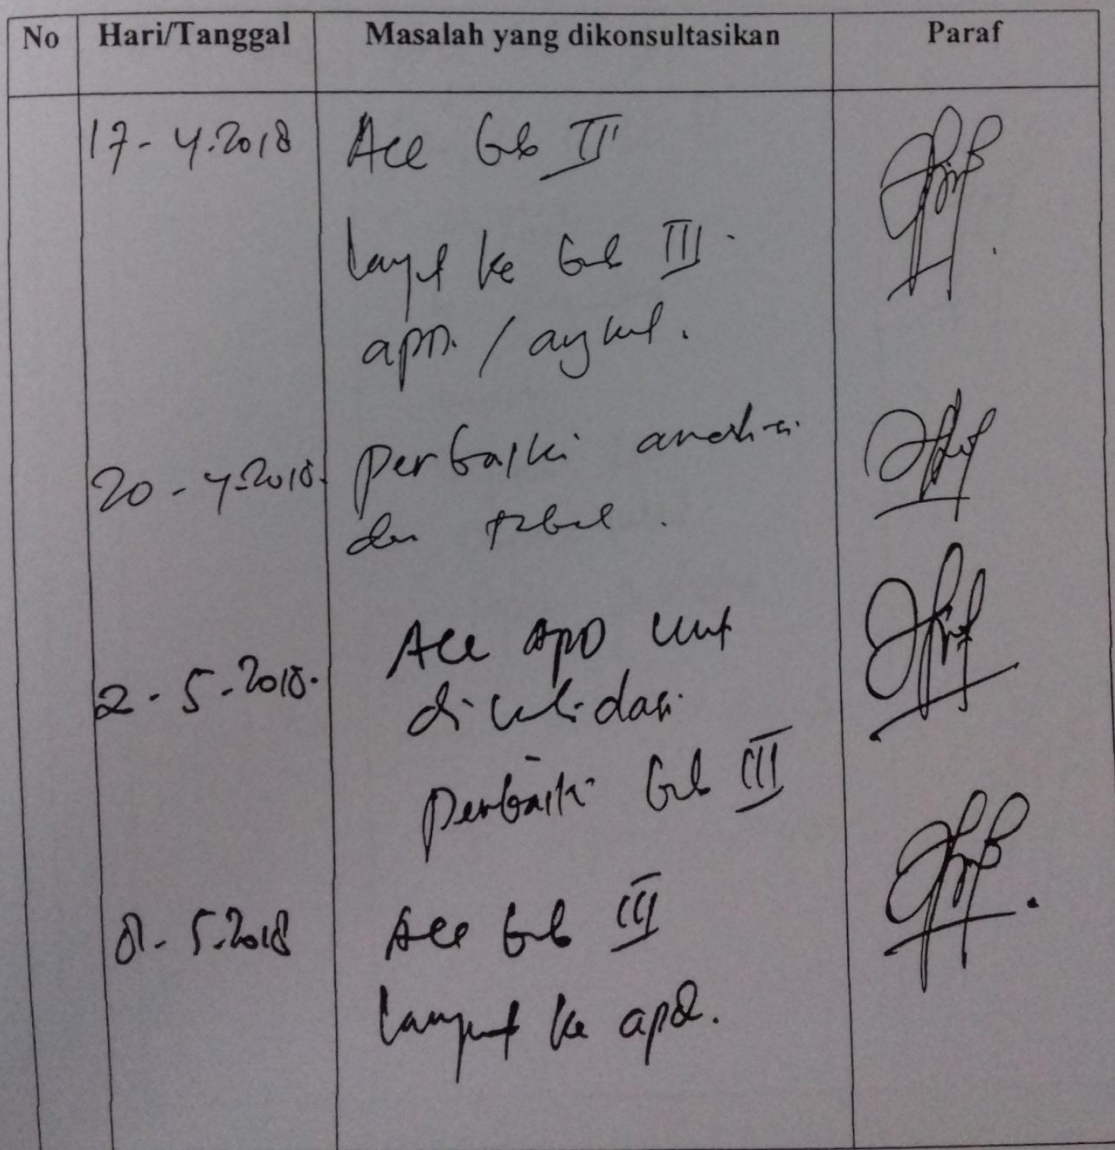 No Hari/Tanggal Masalah yang dikonsultasikan Paraf
17-4-2018 Acc Bab II
lanjut ke Bab III.
apd. / angket.
20-4-2018. Perbaiki
dan tabel.
2-5-2018. Acc apd unt
divalidasi.
Perbaiki Bab III
8-5-2018 Acc Bab III
lanjut ke apd.